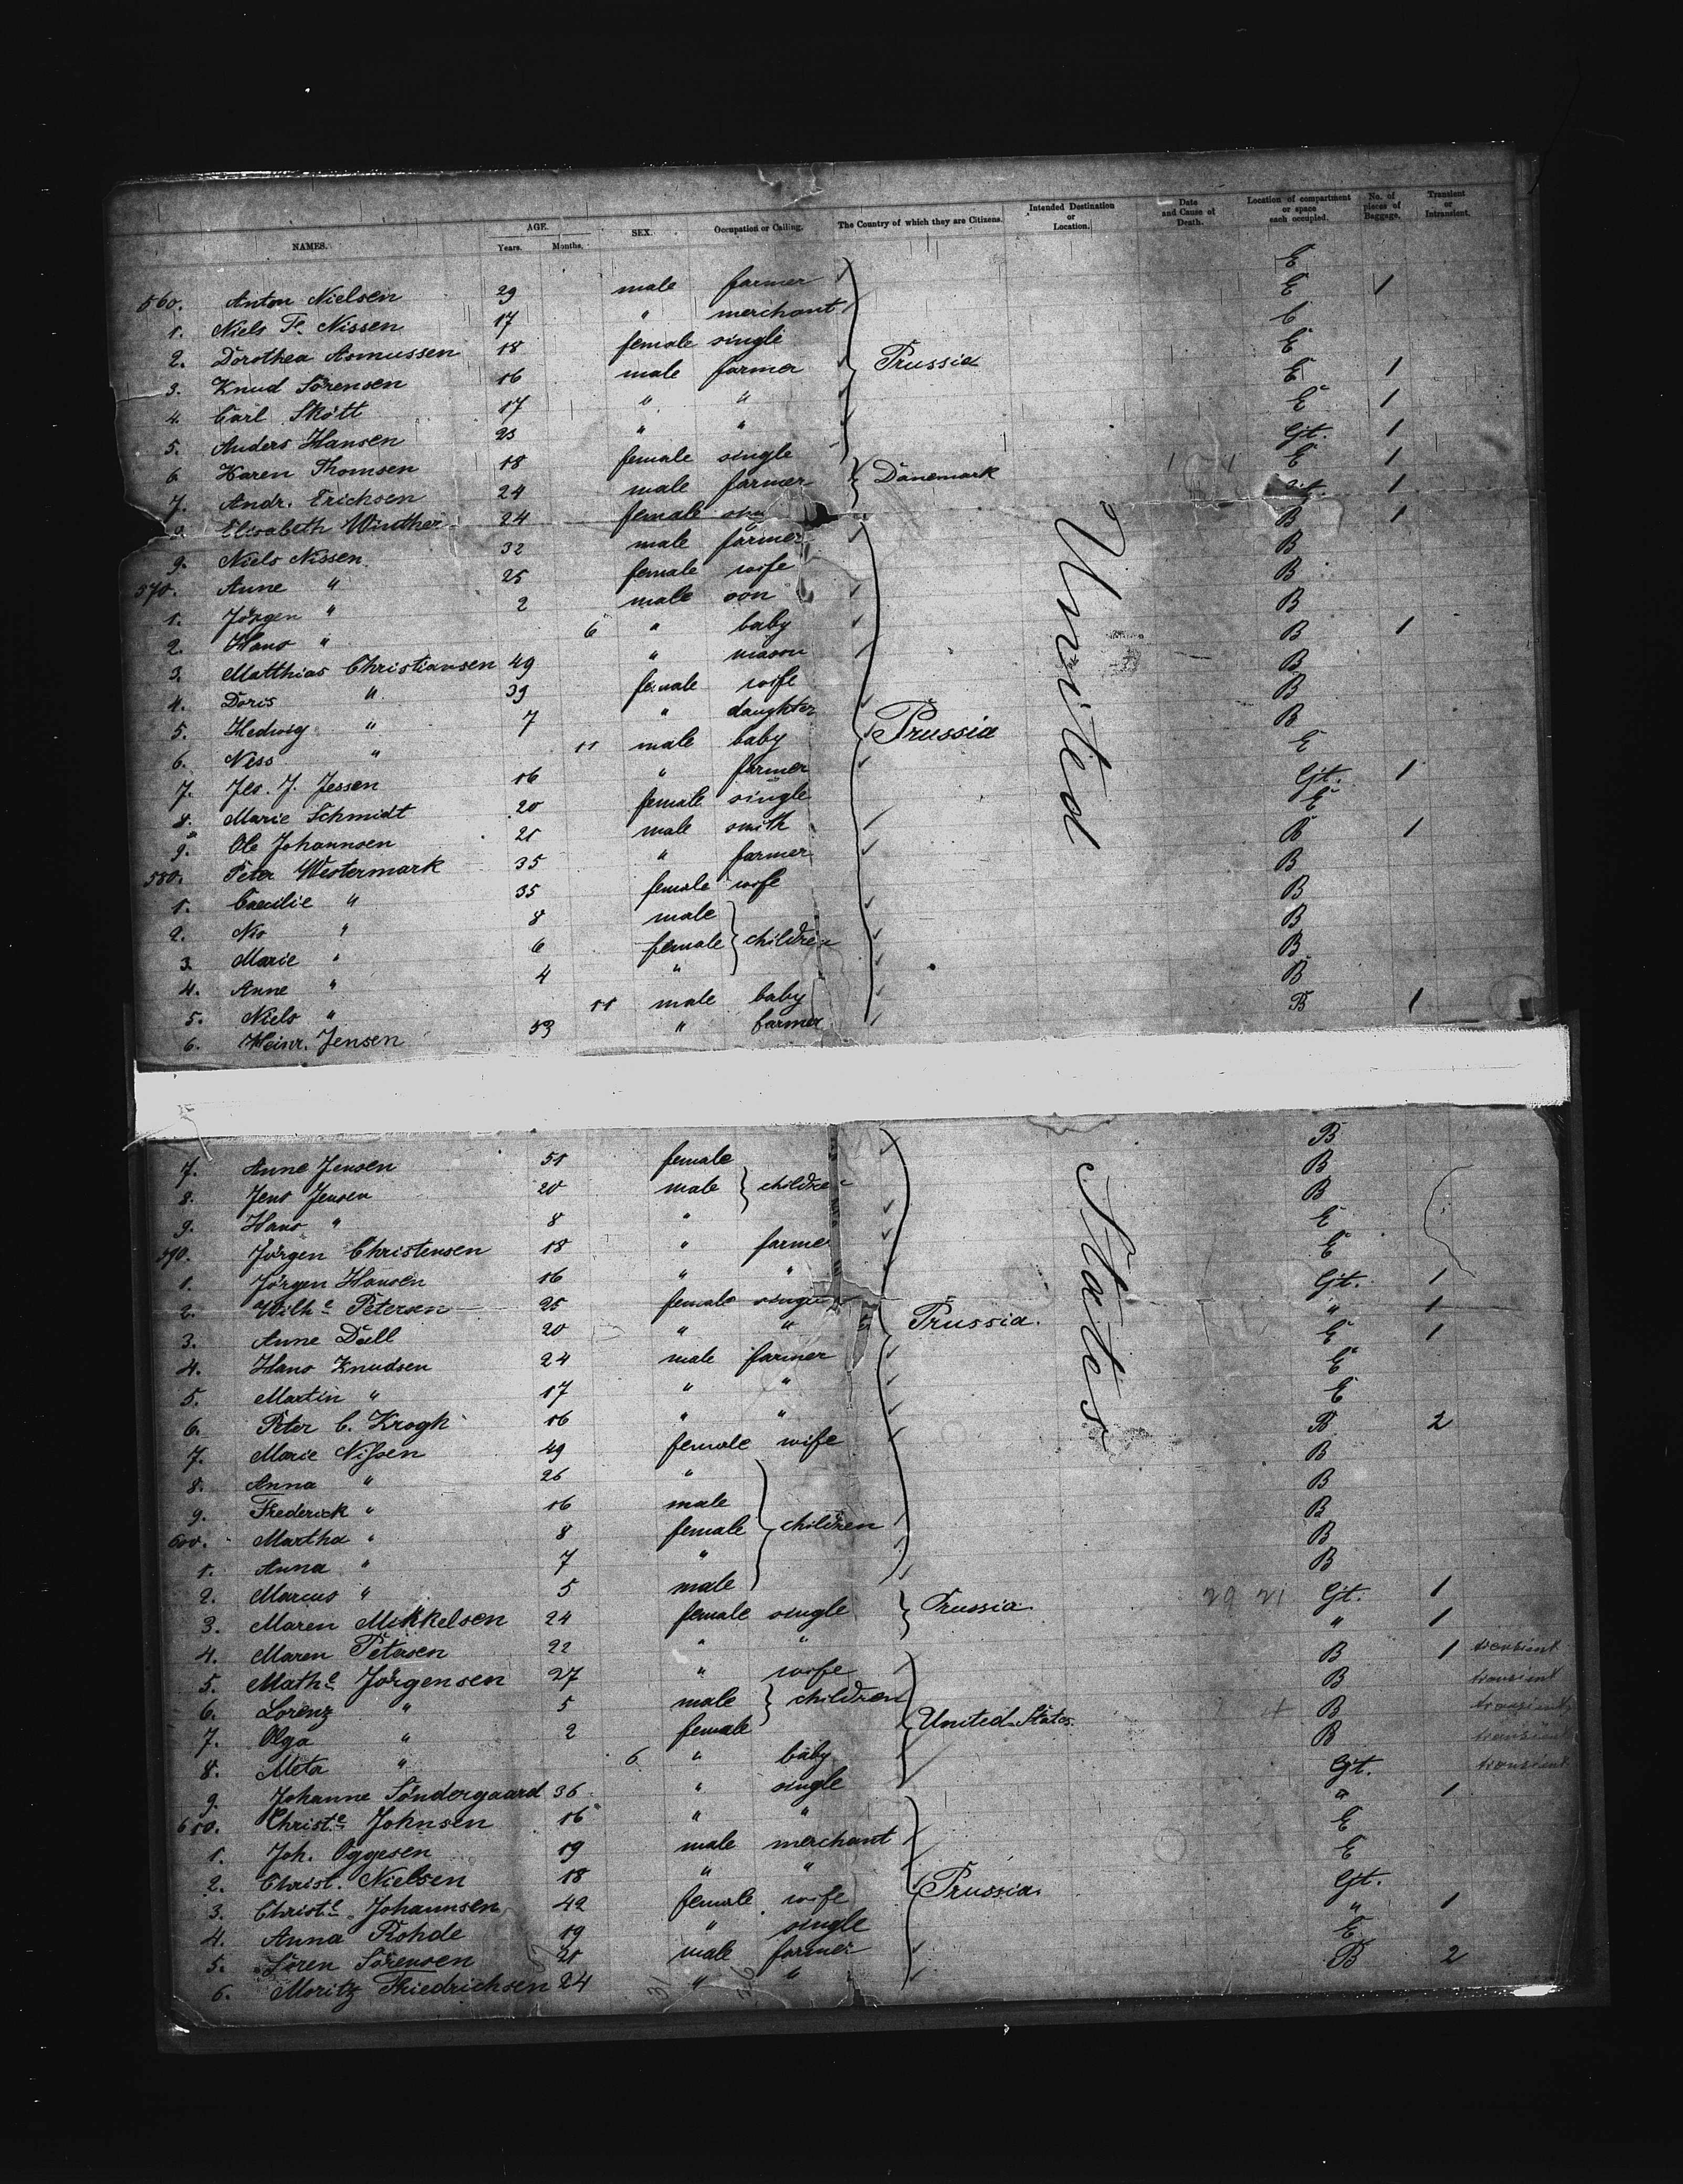 NAMES. AGE. Years. Months. SEX. Occupation or Calling. The Country of which they are Citizens. Intended Destination or Location. Date and Cause of Death. Location of compartment or space each occupied. No. of pieces of Baggage. Transient or Intransient.
E
560. Anton Nielsen 29 male farmer E 1
1. Niels F. Nissen 17 " merchant
2. Dorothea Asmussen 18 female single E
3. Knud Sörensen 16 male farmer Prussia E 1
4. Carl Skött 17 " " E 1
5. Anders Hansen 23 " " Gjt. 1
6. Karen Thomsen 18 female single E 1
7. Andr. Erichsen 24 male farmer Dänemark 1
Elisabeth Winther 24 female B 1
9. Niels Nissen 32 male farmer B
570. Anne " 25 female wife B
1. Jörgen " 2 male son B
2. Hans " 6 " baby B 1
3. Matthias Christiansen 49 " mason B
4. Doris " 39 female wife B
5. Hedwig " 7 " daughter B
6. Ness " 11 male baby Prussia E
7. Jes. J. Jessen 16 " farmer Gjt. 1
8. Marie Schmidt 20 female single E
9. Ole Johannsen 21 male smith B 1
580. Peter Westermark 35 " farmer B
1. Caecilie " 35 female wife B
2. Nis " 8 male B
3. Marie " 6 female children B
4. Anne " 4 " B
5. Niels " 11 male baby B 1
6. Heinr. Jensen 53 " farmer
United
B
7. Anne Jensen 51 female B
8. Jens Jensen 20 male children B
9. Hans " 8 " E
590. Jörgen Christensen 18 " farmer E
1. Jörgen Hansen 16 " " Gjt. 1
2. Wilhe Petersen 25 female single " 1
3. Anne Dall 20 " " Prussia. E 1
4. Hans Knudsen 24 male farmer E
5. Martin " 17 " " E
6. Peter C. Krogh 16 " " B 2
7. Marie Nissen 49 female wife B
8. Anna " 26 " B
9. Frederick " 16 male B
600. Martha " 8 female children B
1. Anna " 7 " B
2. Marcus " 5 male 29 21 Gjt. 1
3. Maren Mikkelsen 24 female single Prussia " 1
4. Maren Petersen 22 " " B 1 transient
5. Mathe Jörgensen 27 " wife B transient
6. Lorenz " 5 male children B transient
7. Olga " 2 female United States. B transient
8. Meta " 6 " baby Gjt. transient
9. Johanne Söndergaard 36 " single " 1
610. Christe Johnsen 16 " " E
1. Joh. Oggesen 19 male merchant E
2. Christ. Nielsen 18 " " Gjt.
3. Christe Johannsen 42 female wife Prussia. " 1
4. Anna Rohde 19 " single E
5. Sören Sörensen 21 male farmer B 2
6. Moritz Friedrichsen 24 " "
States
31